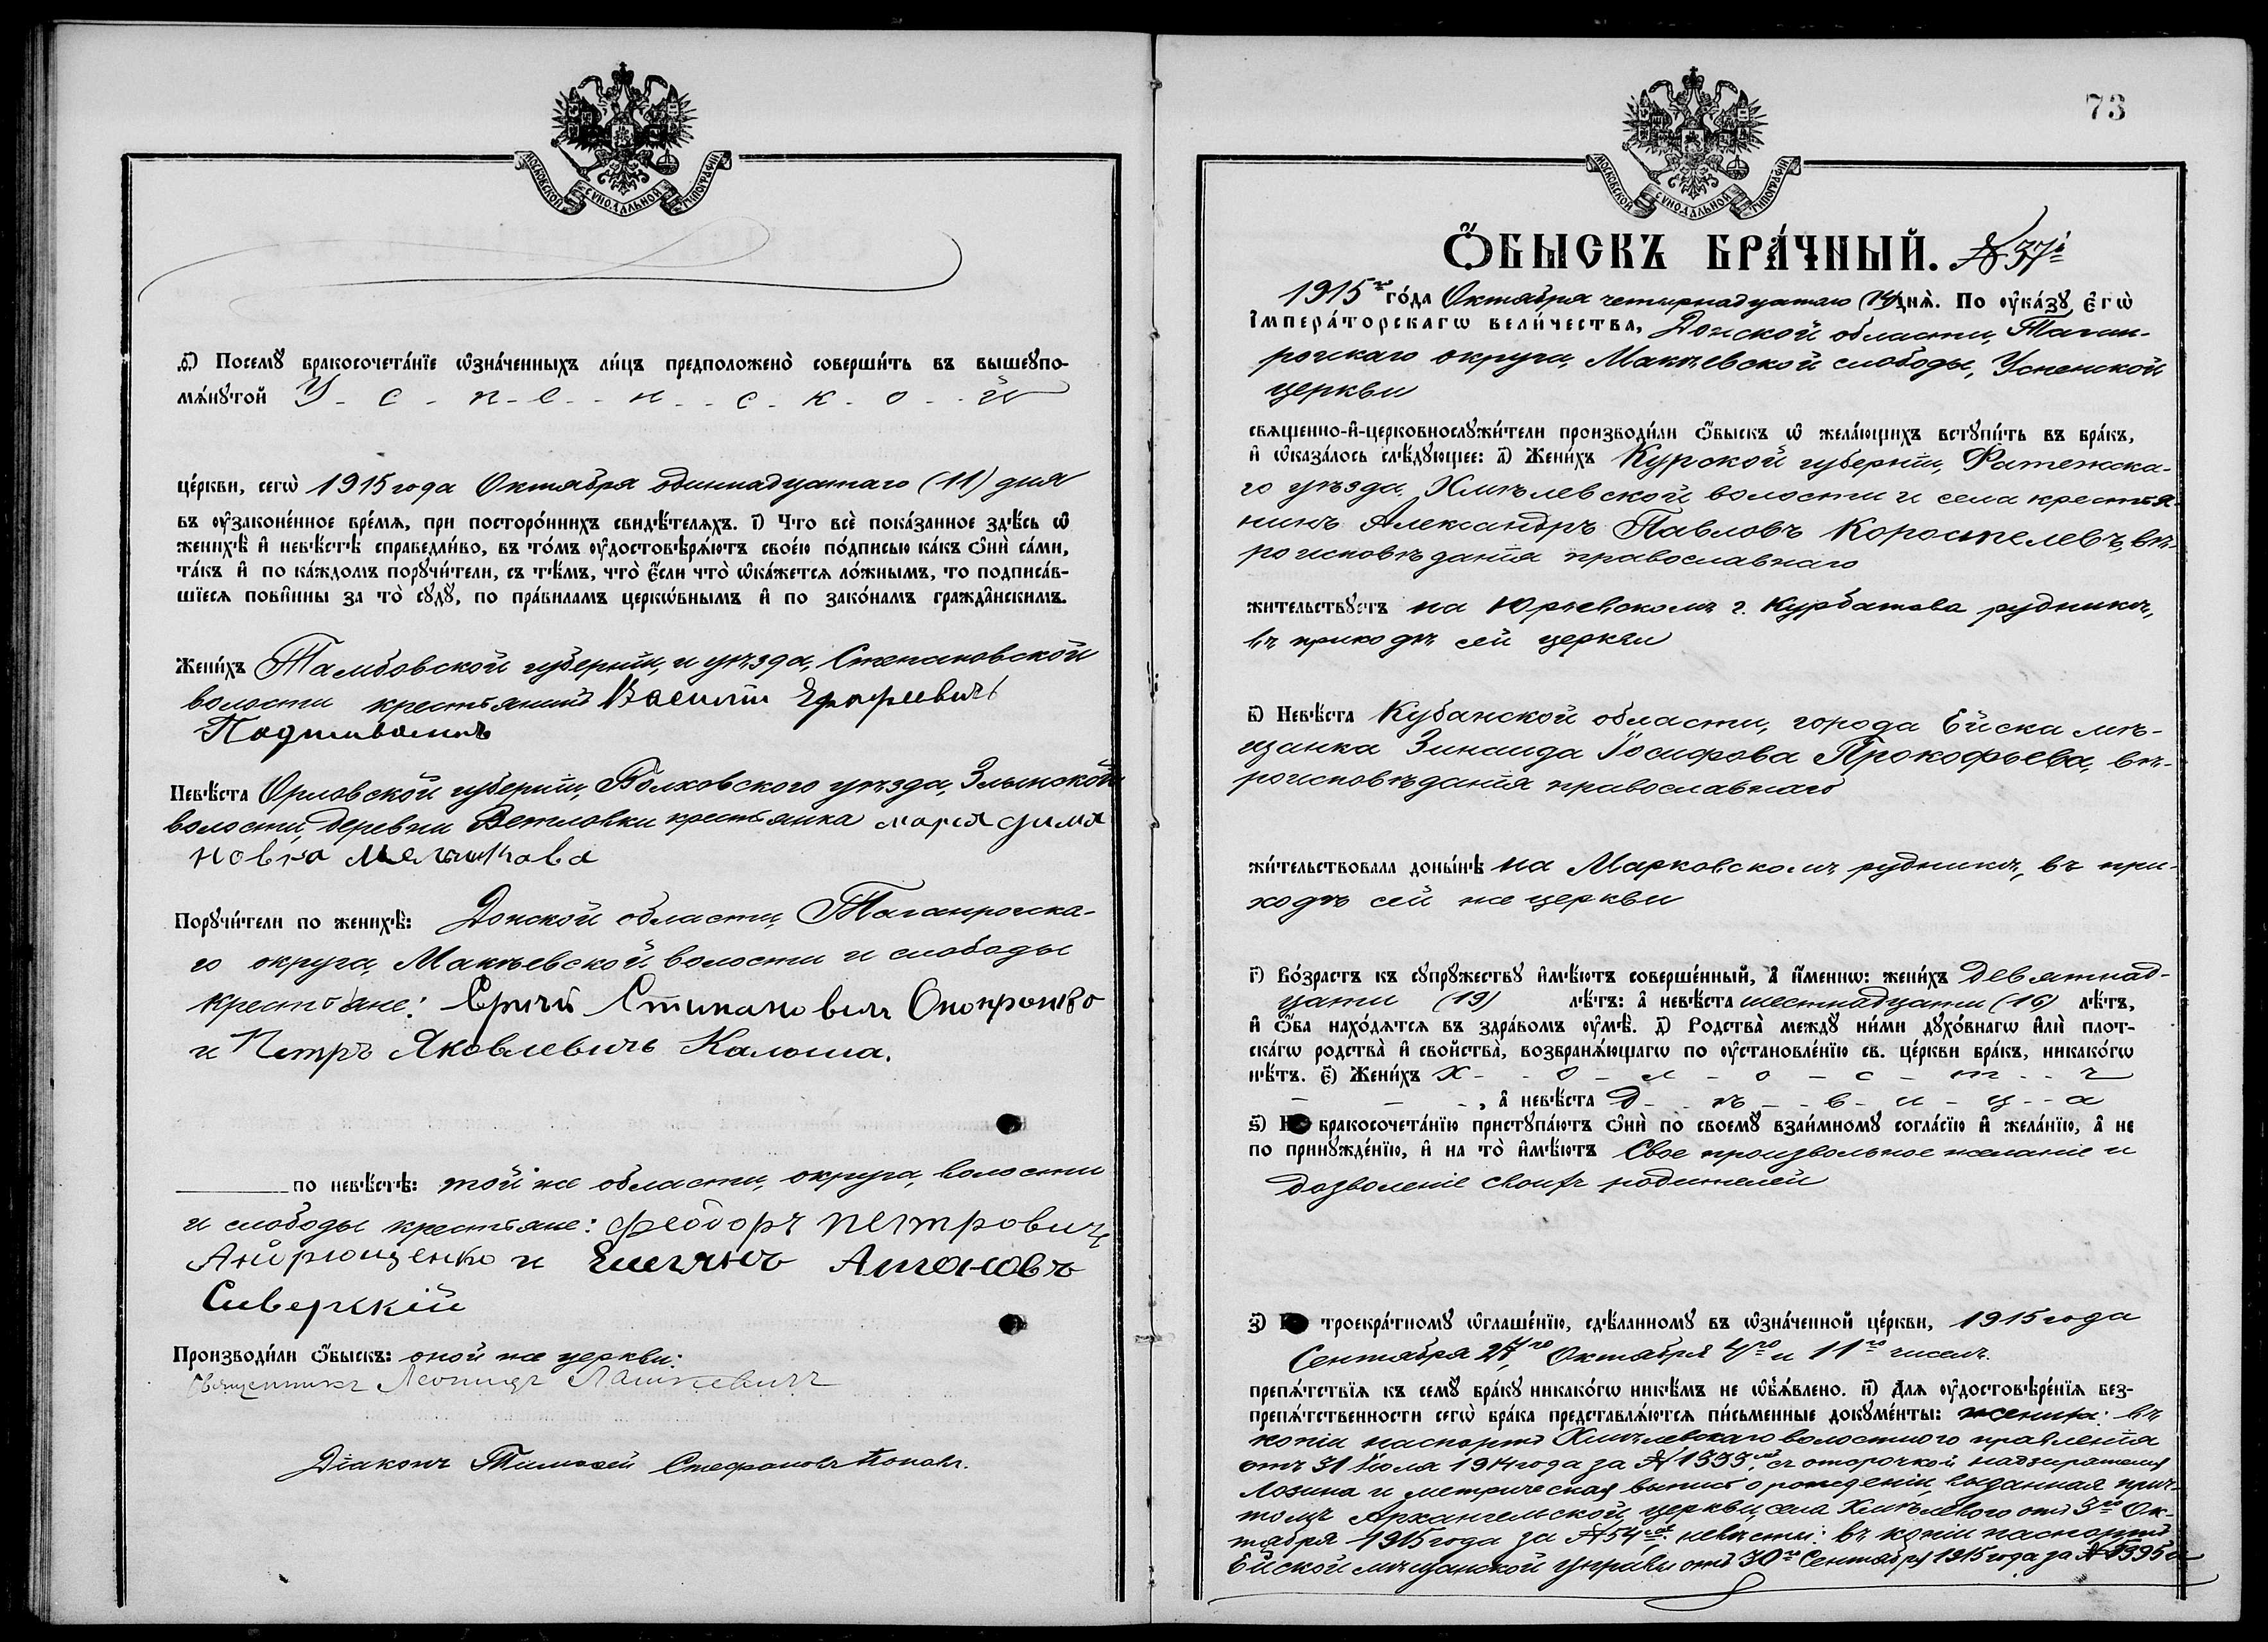 МОСКОВСКОЙ СѴНОДАЛЬНОЙ ТИПОГРАФІИ
ѳ҃) Посемꙋ̀ бракосочета́нїе ѡ҆зна́ченныхъ ли́цъ предположено̀ соверши́ть въ вышеꙋпо-
мѧ́нꙋтой У-с-п-е-н-с-к-о-й
це́ркви, сегѡ̀ 1915 года Октября одиннадцатаго (11) дня
въ ᲂу҆законе́нное вре́мѧ, при посторо́ннихъ свидѣ́телѧхъ. і҃) Что̀ всѐ пока́занное здѣ́сь ѡ҆
женихѣ̀ и҆ невѣ́стѣ справедли́во, въ то́мъ ᲂу҆достовѣрѧ́ютъ свое́ю по́дписью ка́къ ѻ҆нѝ са́ми,
та́къ и҆ по ка́ждомъ порꙋчи́тели, съ тѣ́мъ, что̀ є҆́сли что̀ ѡ҆ка́жетсѧ ло́жнымъ, то подписа́в-
шїесѧ пови́нны за то̀ сꙋдꙋ̀, по пра́виламъ церкѡ́внымъ и҆ по зако́намъ гражда́нскимъ.
Жени́хъ Тамбовской губерніи, и уѣзда, Степановской
волости крестьянинъ Василій
Невѣ́ста Орловской губерніи, Болховского уѣзда, Злынской
волости, деревни Ветловки крестьянка
Порꙋчи́тели по женихѣ̀: Донской области, Таганрогска-
го округа, Макѣевской волости и слободы
крестьяне:
и Петръ Яковлевичъ Калоша.
по невѣ́стѣ: той же области, округа, волости
и слободы крестьяне: Феодоръ Петровичъ
Андрющенко и
Сиверскій
Производи́ли ѻ҆́быскъ: оной же церкви:
Священникъ Леонидъ
Діаконъ Тимоѳей Стефановъ Поповъ.
73
МОСКОВСКОЙ СѴНОДАЛЬНОЙ ТИПОГРАФІИ
Ѻ҆БЫСКЪ БРА́ЧНЫЙ. № 37й
1915го го́да Октября четырнадцатаго (14) днѧ̀. По ᲂу҆ка́зꙋ є҆гѡ̀
І҆мпера́торскагѡ вели́чества, Донской области, Таган-
рогскаго округа, Макѣевской слободы, Успенской
церкви
свѧщенно-и҆-церковнослꙋжи́тели производи́ли ѻ҆́быскъ ѡ҆ жела́ющихъ встꙋпи́ть въ бра́къ,
и҆ ѡ҆каза́лось слѣ́дꙋющее: а҃) Жени́хъ Курской губерніи, Фатежска-
го уѣзда, Хмѣлевской волости и села крестья-
нинъ Александръ Павловъ Коростелевъ, вѣ-
роисповѣданія православнаго
жи́тельствꙋетъ на Юрьевскомъ г. Курбатова рудникѣ,
въ приходѣ сей церкви
в҃) Невѣ́ста Кубанской области, города Ейска мѣ-
щанка Зинаида Іосифова Прокофьева, вѣ-
роисповѣданія православнаго
жи́тельствовала доны́нѣ на Марковскомъ рудникѣ, въ при-
ходѣ сей же церкви
г҃) Во́зрастъ къ сꙋпрꙋ́жествꙋ и҆мѣ́ютъ соверше́нный, а҆ и҆́меннѡ: жени́хъ девятнад-
цати (19) лѣ́тъ: а҆ невѣ́ста шестнадцати (16) лѣ́тъ,
и҆ ѻ҆́ба нахо́дѧтсѧ въ здра́вомъ ᲂу҆мѣ̀. д҃) Родства̀ междꙋ̀ ни́ми дꙋхо́внагѡ и҆лѝ плот-
ска́гѡ родства̀ и҆ свойства̀, возбранѧ́ющагѡ по ᲂу҆становле́нїю св. це́ркви бра́къ, никако́гѡ
нѣ́тъ. є҃) Жени́хъ х-о-л-о-с-т-ъ
- - -, а҆ невѣ́ста д-ѣ-в-и-ц-а
ѕ҃) бракосочета́нїю пристꙋпа́ютъ ѻ҆нѝ по̀ своемꙋ̀ взаи́мномꙋ согла́сїю и҆ жела́нїю, а҆ не
по принꙋжде́нїю, и҆ на то̀ и҆мѣ́ютъ свое произвольное желаніе и
дозволеніе своихъ родителей
з҃) троекра́тномꙋ ѡ҆глаше́нїю, сдѣ́ланномꙋ въ ѡ҆зна́ченной це́ркви, 1915 года
Сентября 27го, Октября 4го и 11го чиселъ.
препѧ́тствїѧ къ семꙋ̀ бра́кꙋ никако́гѡ никѣ́мъ не ѡ҆б̾ѧ́влено. и҃) Длѧ ᲂу҆достовѣре́нїѧ без-
препѧ́тственности сегѡ̀ бра́ка представлѧ́ютсѧ пи́сьменные докꙋме́нты: жениха: въ
копіи паспортъ Хмѣлевскаго волостного правленія
отъ 31 Іюля 1914 года за № 1333, съ отсрочкой надзирателя
Лозина и метрическая выпись о рожденіи, выданная прич-
томъ Архангельской церкви, села Хмѣлевого отъ 3го Ок-
тября 1915 года за № 54; невѣсты: въ копіи паспортъ
Ейской мѣщанской управы отъ 30го Сентября 1915 года за №